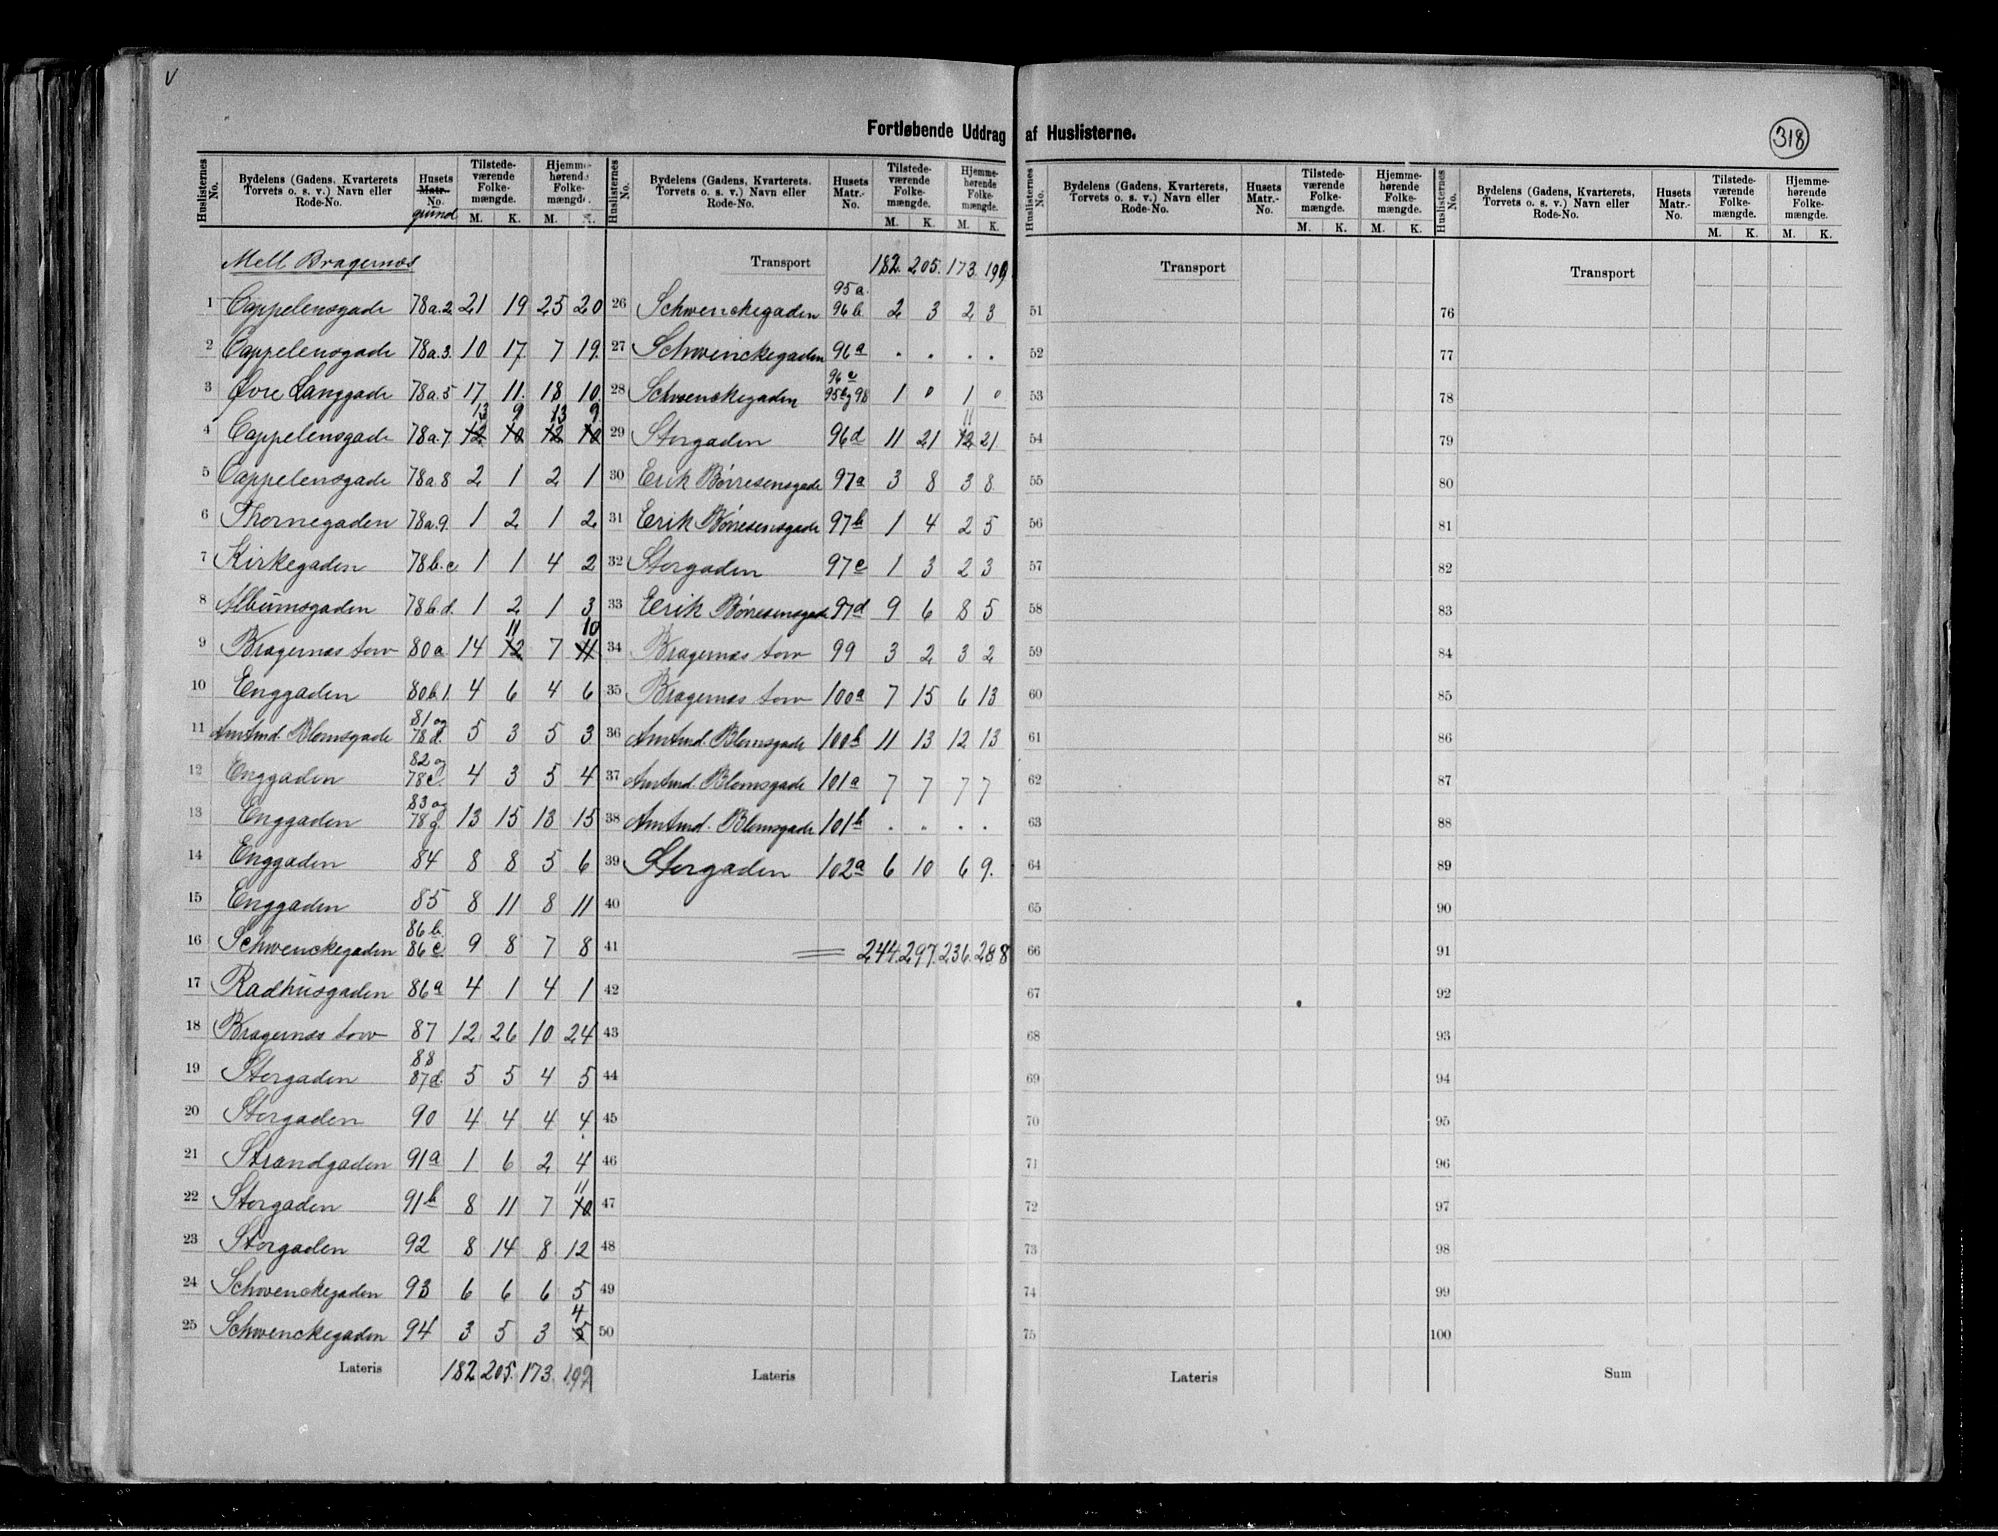 V
Fortløbende Uddrag af Huslisterne.
318
Huslisternes No. | Bydelens (Gadens, Kvarterets Torvets o. s. v.) Navn eller Rode-No. | Husets Matr.-No. grund | Tilstede-værende Folke-mængde. M. K. | Hjemme-hørende Folke-mængde. M. K.
Mell Bragernæs
1 Cappelensgade 78a.2 21 19 25 20
2 Cappelensgade 78a.3. 10 17. 7 19.
3 Øvre Langgade 78a.5 17 11. 18 10.
13 9 13 9
4 Cappelensgade 78a.7. 12 10 12 10
5 Cappelensgade 78a.8 2 1 2 1
6 Thornegaden 78a.9. 1 2 1 2
7 Kirkegaden 78b.c 1 1 4 2
8 Albumsgaden 78b.d. 1 2 1 3
11 10
9 Bragernæs torv 80a 14 12 7 11
10 Enggaden 80b.1. 4 6 4 6
11 Amtmd. Blomsgade 81 og 78d. 5 3 5 3
12 Enggaden 82 og 78c. 4 3 5 4
13 Enggaden 83 og 78g. 13 15 13 15
14 Enggaden 84 8 8 5 6
15 Enggaden 85 8 11 8 11
16 Schwenckegaden 86b. 86c. 9 8 7 8
17 Radhusgaden 86a 4 1 4 1
18 Bragernæs torv 87 12 26 10 24
19 Storgaden 88 87d. 5 5 4 5
20 Storgaden 90 4 4 4 4
21 Strandgaden 91a 1 6 2 4
11
22 Storgaden 91b 8 11 7 10
23 Storgaden 92 8 14 8 12
24 Schwenckegaden 93 6 6 6 5
4
25 Schwenckegaden 94 3 5 3 5
Lateris 182 205. 173.
Huslisternes No. | Bydelens (Gadens, Kvarterets. Torvets o. s. v.) Navn eller Rode-No. | Husets Matr.-No. | Tilstede-værende Folke-mængde. M. K. | Hjemme-hørende Folke-mængde. M. K.
Transport 182. 205. 173.
26 Schwenckegaden 95a. 96b 2 3 2 3
27 Schwenckegaden 96a . . . .
28 Schwenckegaden 96c 95b og 98 1 0 1 0
11
29 Storgaden 96d 11 21 12 21.
30 Erik Børresensgade 97a 3 8 3 8
31 Erik Børresensgade 97b 1 4 2 5
32 Storgaden 97c 1 3 2 3
33 Erik Børresensgade 97d 9 6 8 5
34 Bragernæs torv 99 3 2 3 2
35 Bragernæs torv 100a 7 15 6 13
36 Amtmd. Blomsgade 100b 11 13 12 13
37 Amtmd. Blomsgade 101a 7 7 7 7
38 Amtmd. Blomsgade 101b . . . .
39 Storgaden 102a 6 10 6 9.
40
41 244. 297. 236. 288
42
43
44
45
46
47
48
49
50
Lateris
Huslisternes No. | Bydelens (Gadens, Kvarterets, Torvets o. s. v.) Navn eller Rode-No. | Husets Matr.-No. | Tilstede-værende Folke-mængde. M. K. | Hjemme-hørende Folke-mængde. M. K.
Transport
51
52
53
54
55
56
57
58
59
60
61
62
63
64
65
66
67
68
69
70
71
72
73
74
75
Lateris
Huslisternes No. | Bydelens (Gadens, Kvarterets, Torvets o. s. v.) Navn eller Rode-No. | Husets Matr.-No. | Tilstede-værende Folke-mængde. M. K. | Hjemme-hørende Folke-mængde. M. K.
Transport
76
77
78
79
80
81
82
83
84
85
86
87
88
89
90
91
92
93
94
95
96
97
98
99
100
Sum